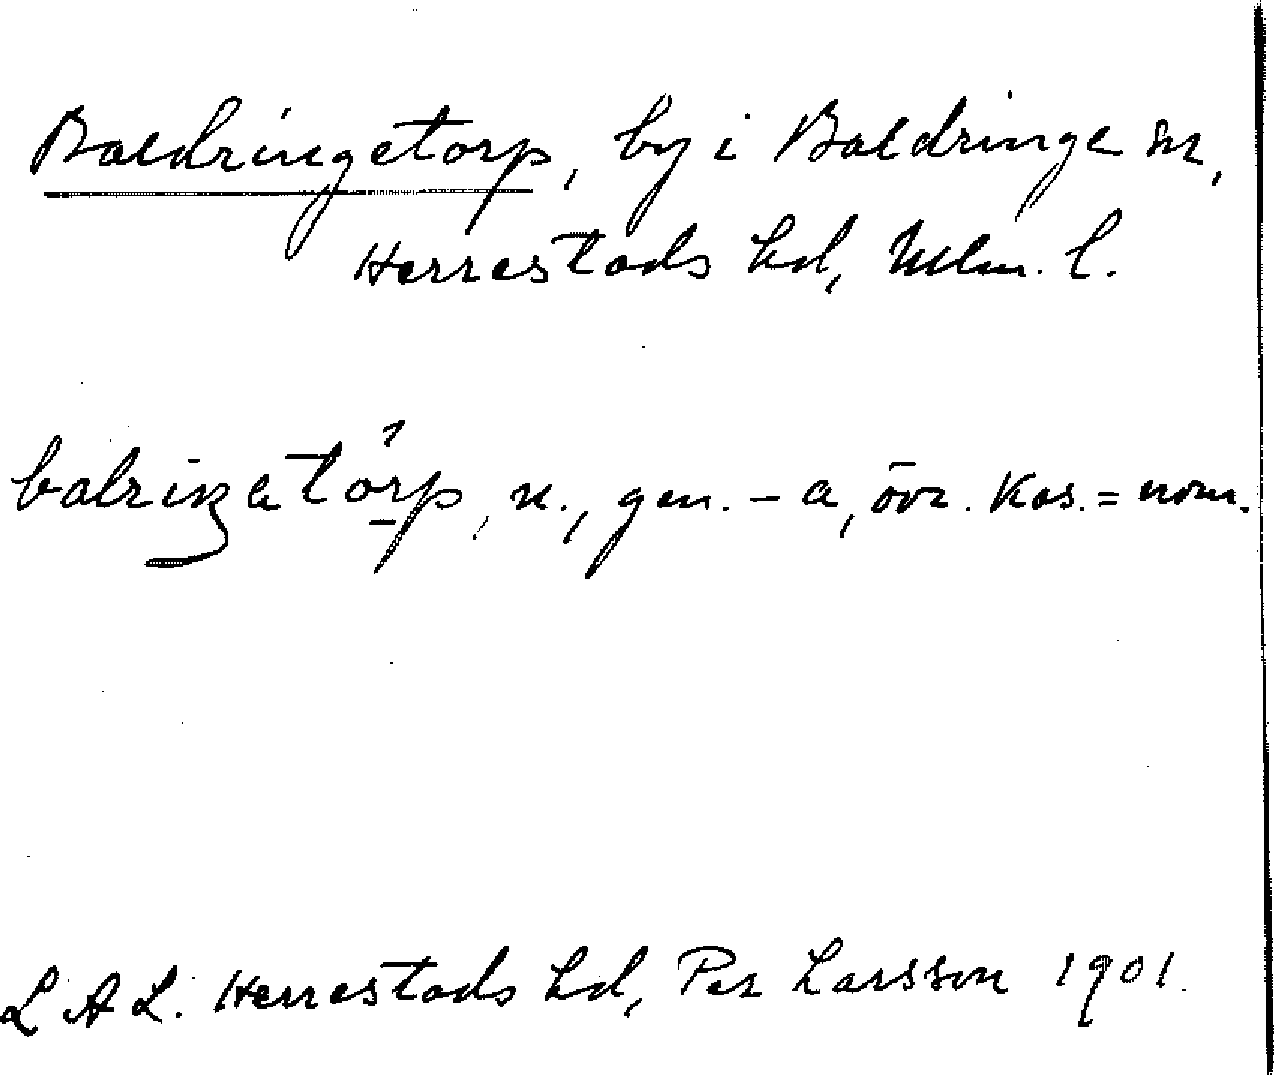 Baldringetorp, by i Baldringe sn,
Herrestads hd, Mlm. l.
balriŋatórp, n., gen. -a, övr. kas. = nom.
LAL. Herrestads hd, Per Larsson 1901.